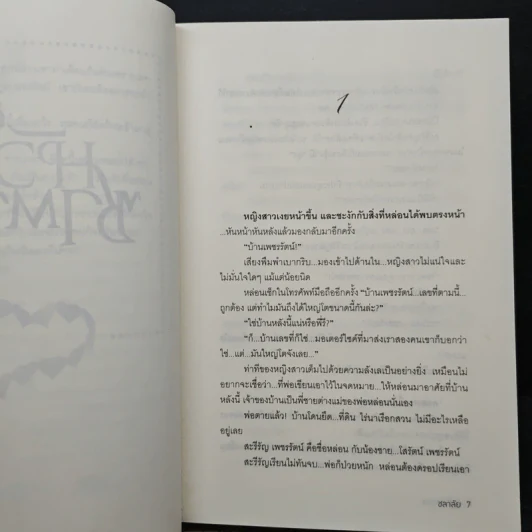 1
หญิงสาวเงยหน้าขึ้น และชะงักกับสิ่งที่หล่อนได้พบตรงหน้า
...หันหน้าหันหลังแล้วมองกลับมาอีกครั้ง
“บ้านเพชรรัตน์!”
เสียงพึมพำเบากริบ...มองเข้าไปด้านใน...หญิงสาวไม่แน่ใจและ
ไม่มั่นใจใดๆ แม้แต่น้อยนิด
หล่อนเช็กในโทรศัพท์มือถืออีกครั้ง “บ้านเพชรรัตน์...เลขที่ตามนี้...
ถูกต้อง แต่ทำไมมันถึงได้ใหญ่โตขนาดนี้กันล่ะ?”
“ใช่บ้านหลังนี้แน่หรือพี่รี?”
“ก็...บ้านเลขที่ก็ใช่...มอเตอร์ไซค์ที่มาส่งเราสองคนเขาก็บอกว่า
ใช่...แต่...มันใหญ่โตจังเลย...”
ท่าทีของหญิงสาวเต็มไปด้วยความลังเลเป็นอย่างยิ่ง เหมือนไม่
อยากจะเชื่อว่า...ที่พ่อเขียนเอาไว้ในจดหมาย...ให้หล่อนมาอาศัยที่บ้าน
หลังนี้ เจ้าของบ้านเป็นพี่ชายต่างแม่ของพ่อหล่อนนั่นเอง
พ่อตายแล้ว! บ้านโดนยึด...ที่ดิน ไร่นาเรือกสวน ไม่มีอะไรเหลือ
อยู่เลย
สะรีรัญ เพชรรัตน์ คือชื่อหล่อน กับน้องชาย...โสรัตน์ เพชรรัตน์
สะรีรัญเรียนไม่ทันจบ...พ่อก็ป่วยหนัก หล่อนต้องดรอปเรียนเอา
ชลาลัย 7